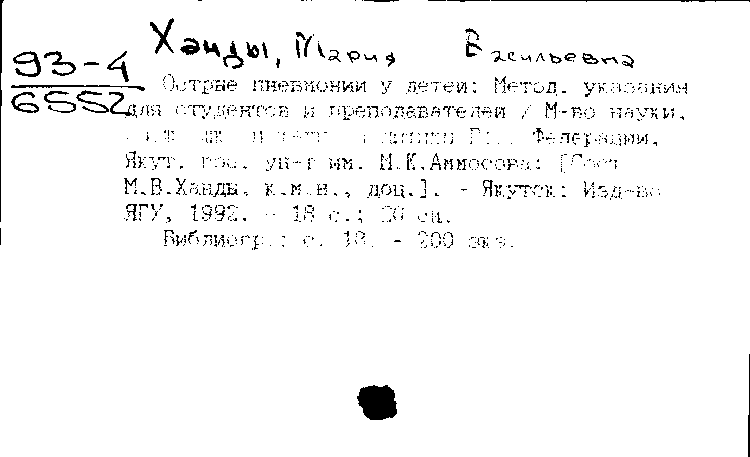 Ханды, Мария Васильевна
93-4
6552
Острые пневмонии у детей: Метод. указания
для студентов и преподавателей / М-во науки,
Федерации,
Якут. гос. ун-т им. М.К.Аммосова; [Сост.
М.В.Ханды, к.м.н., доц.]. - Якутск: Изд-во
ЯГУ, 1992. - 18 с.; 20 см.
Библиогр.: с. 18. - 200 экз.